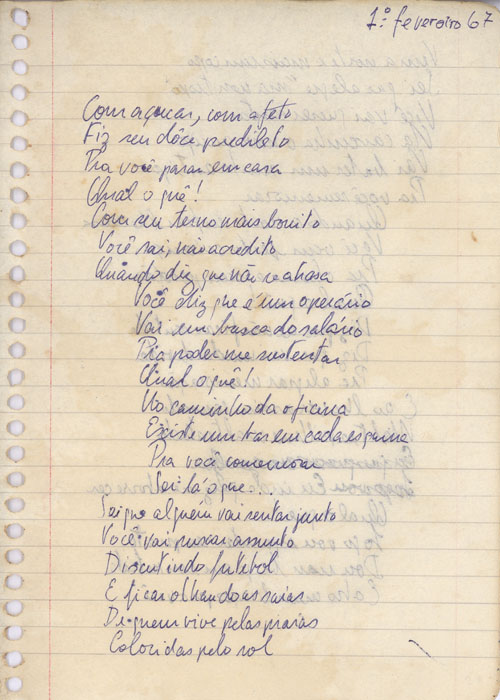 1º fevereiro 67
Com açucar, com afeto
Fiz seu dôce predileto
Pra você parar em casa
Qual o quê!
Com seu terno mais bonito
Você sai, não acredito
Quando diz que não se atrasa
Você diz que é um operário
Vai em busca do salário
Pra poder me sustentar
Qual o quê!
No caminho da oficina
Existe um bar em cada esquina
Pra você comemorar
Sei lá o que...
Sei que alguem vai sentar junto
Você vai puxar assunto
Discutindo futebol
E ficar olhando as saias
De quem vive pelas praias
Coloridas pelo sol